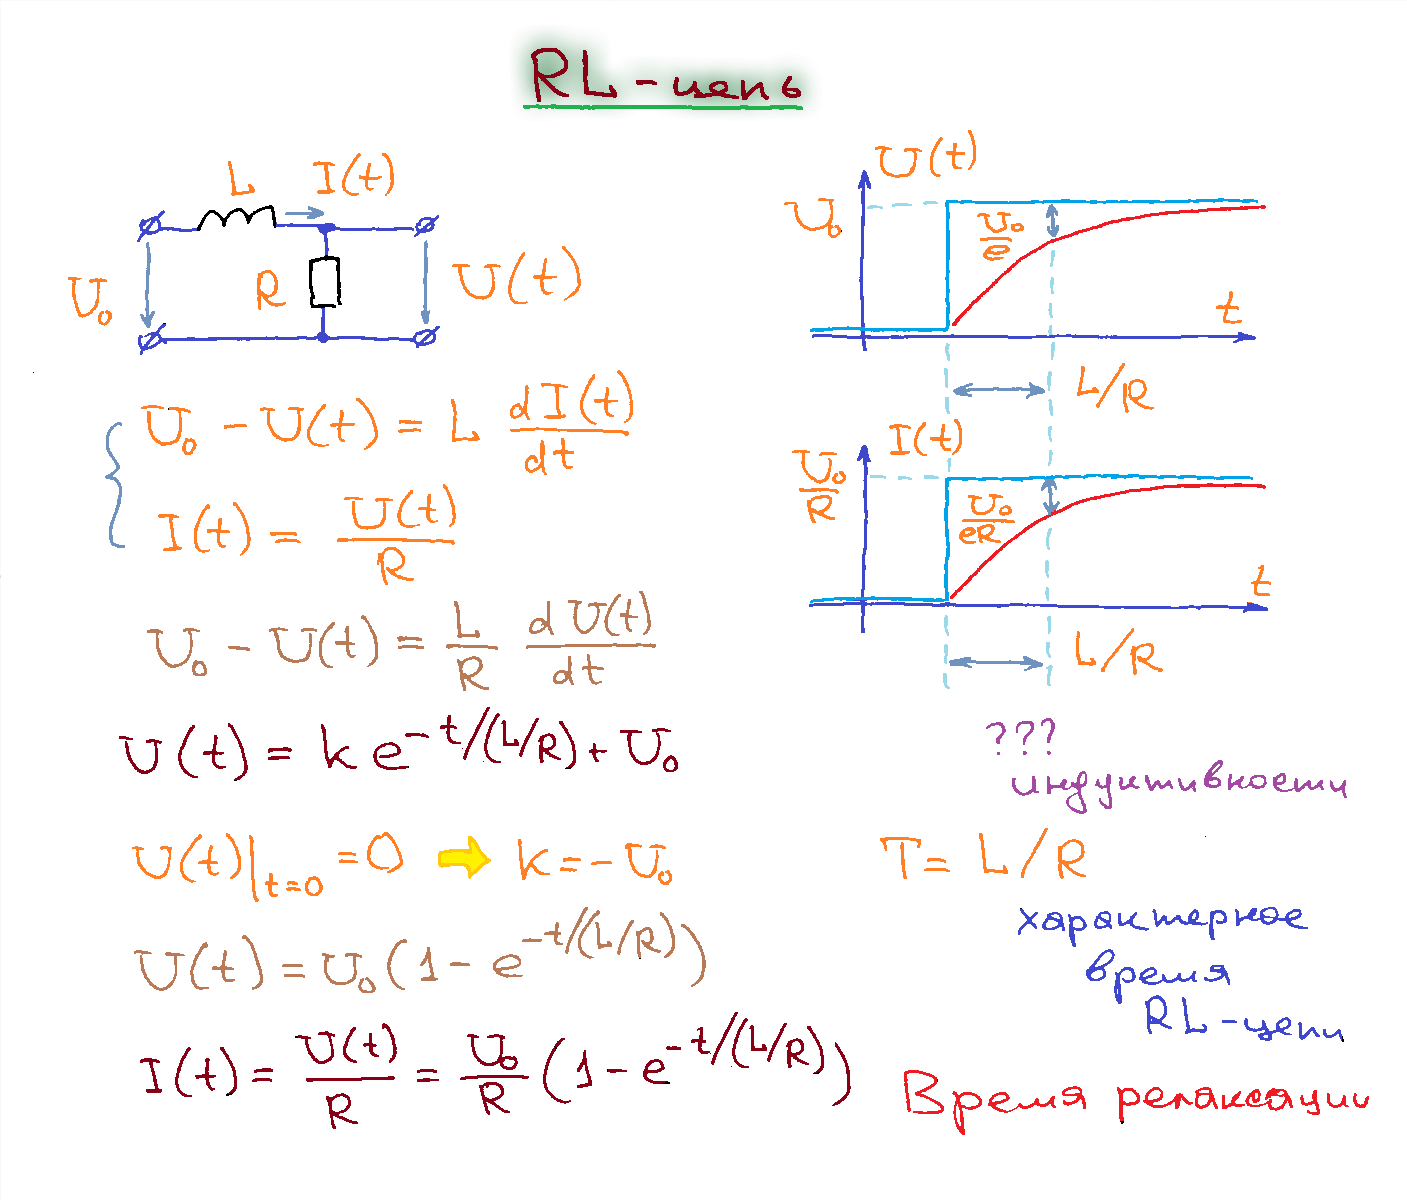 RL-цепь
L I(t)
U₀ R U(t)
U₀ - U(t) = L dI(t)/dt
I(t) = U(t)/R
U₀ - U(t) = L/R dU(t)/dt
U(t) = k e^(-t/(L/R)) + U₀
U(t)|t=0 = 0 ➡ k = -U₀
U(t) = U₀ (1 - e^(-t/(L/R)))
I(t) = U(t)/R = U₀/R (1 - e^(-t/(L/R)))
U(t)
U₀ U₀/e
t
L/R
I(t)
U₀/R U₀/eR
t
L/R
???
индуктивности
T = L/R
характерное
время
RL-цепи
Время релаксации